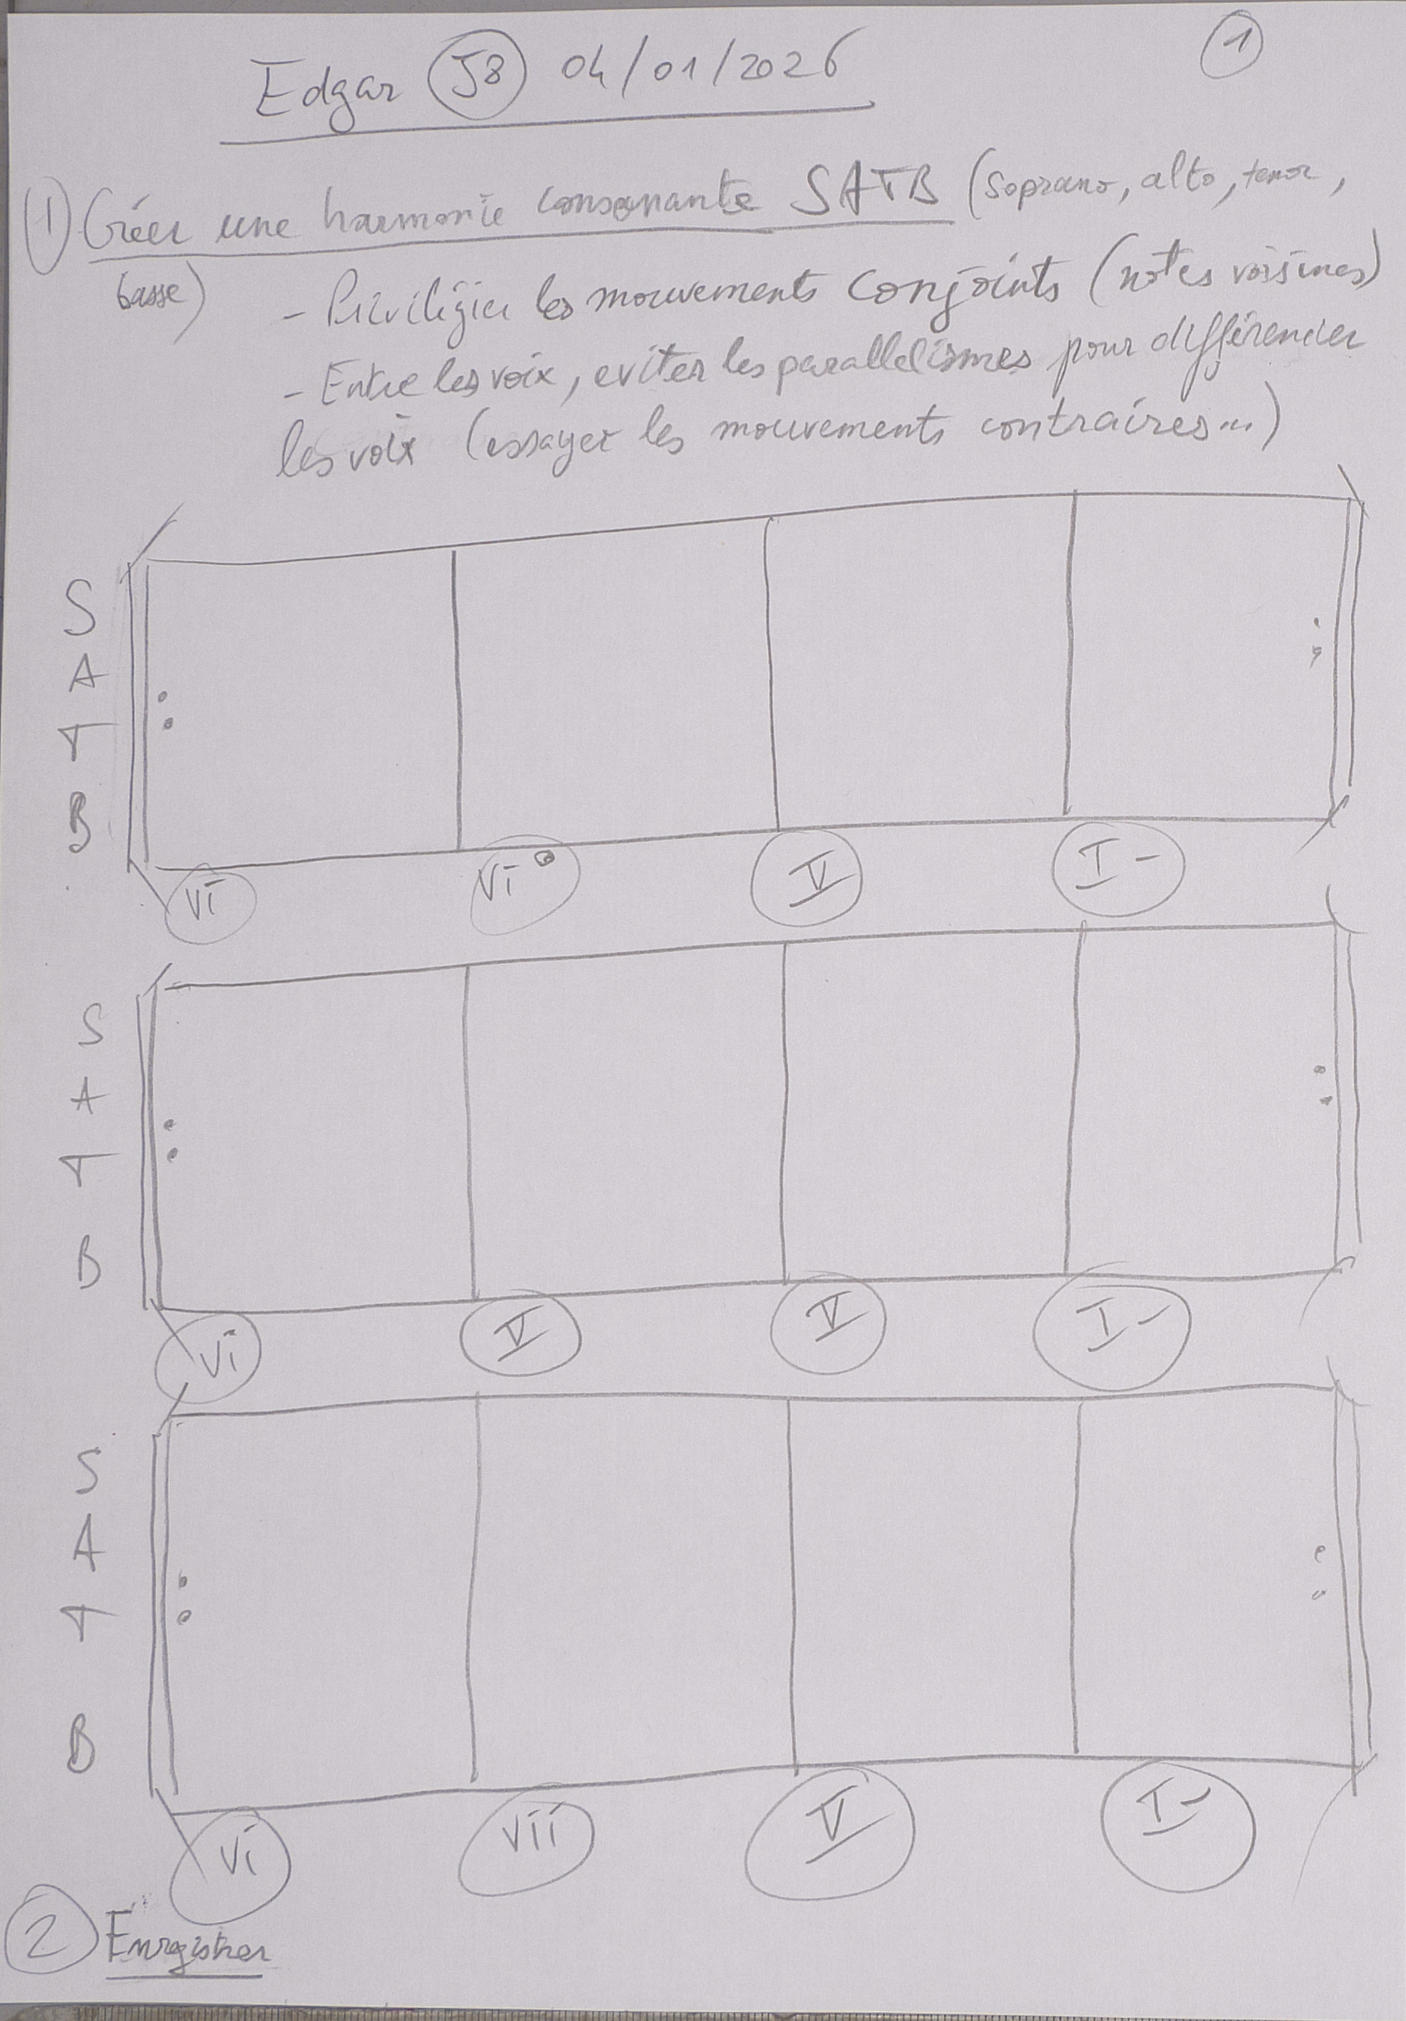 Edgar J8 04/01/2026
1
1) Créer une harmonie consonante SATB (soprano, alto, tenor,
basse) - Privilégier les mouvements conjoints (notes voisines)
- Entre les voix, eviter les parallelismes pour différencier
les voix (essayer les mouvements contraires...)
S
A
T
B
vi vi° V I-
S
A
T
B
vi V V I-
S
A
T
B
vi vii V I-
2 Enregistrer